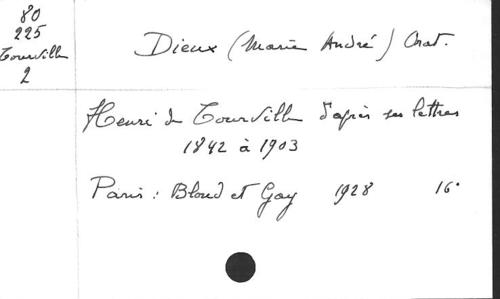 80
225
Tourville
2
Dieux (Marie André) Chat.
Henri de Tourville d'après ses lettres
1842 à 1903
Paris : Bloud et Gay 1928 16°